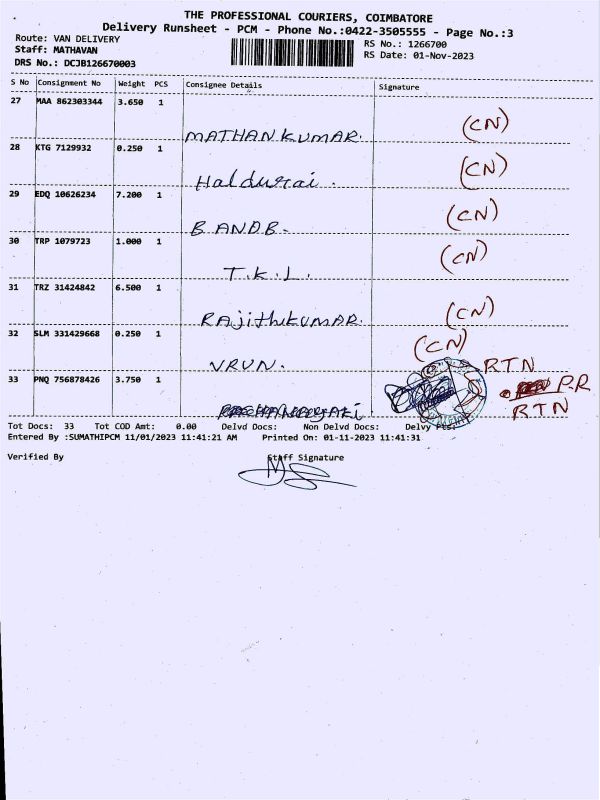 THE PROFESSIONAL COURIERS, COIMBATORE
Delivery Runsheet - PCM - Phone No.:0422-3505555 - Page No.:3
Route: VAN DELIVERY
Staff: MATHAVAN
DRS No.: DCJB126670003
RS No.: 1266700
RS Date: 01-Nov-2023
S No Consignment No Weight PCS Consignee Details Signature
27 MAA 862303344 3.650 1
MATHANKUMAR. (CN)
28 KTG 7129932 0.250 1
Haldurai. (CN)
29 EDQ 10626234 7.200 1
B ANDB. (CN)
30 TRP 1079723 1.000 1
T.K.L. (CN)
31 TRZ 31424842 6.500 1
RAjithKUMAR. (CN)
32 SLM 331429668 0.250 1
VRUN. (CN)
RTN
33 PNQ 756878426 3.750 1
P.R
RTN
Tot Docs: 33 Tot COD Amt: 0.00 Delvd Docs: Non Delvd Docs: Delvy Pts:
Entered By :SUMATHIPCM 11/01/2023 11:41:21 AM Printed On: 01-11-2023 11:41:31
Verified By Staff Signature